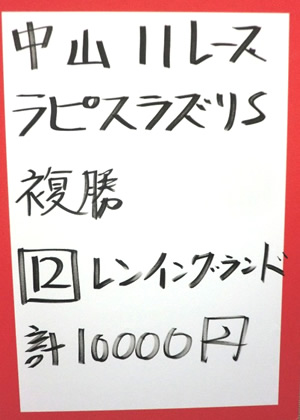 中山11レース
ラピスラズリS
複勝
12 レンイングランド
計10000円